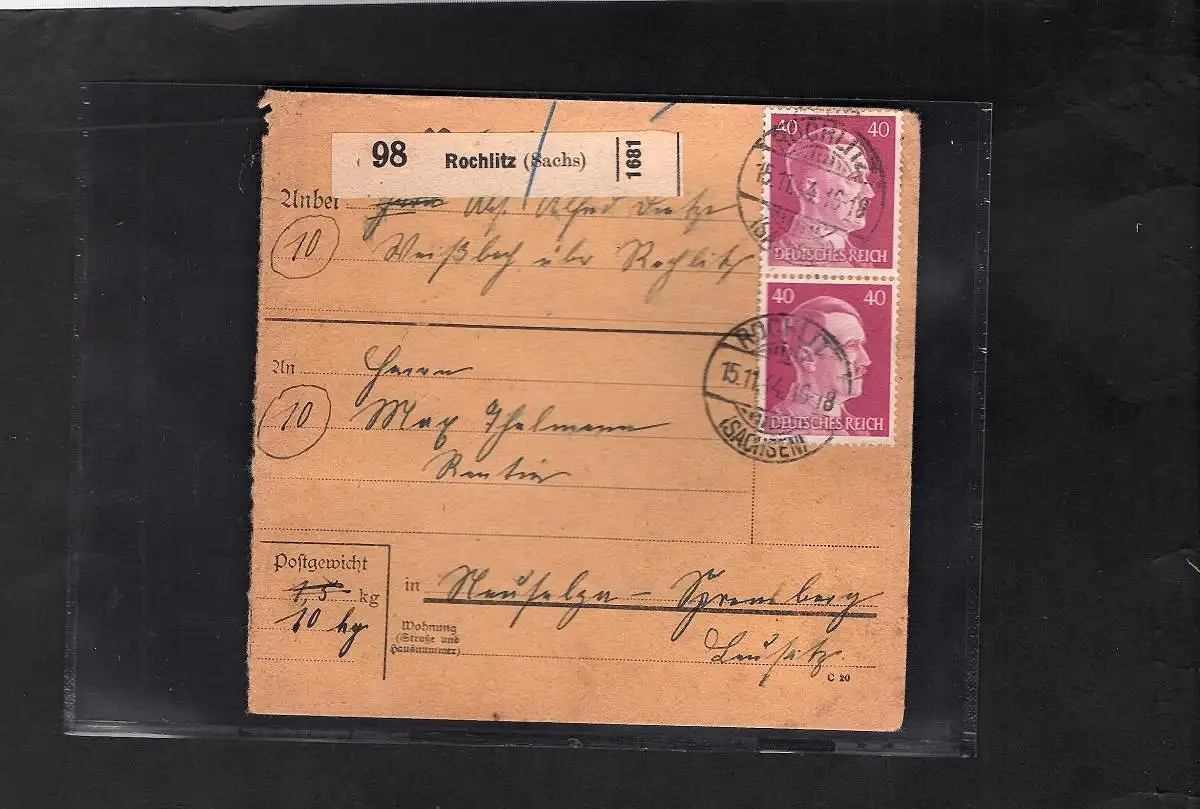 98 Rochlitz (Sachs) 1681
Anbei Alfred
(10) Weißbach über Rochlitz
40 40
ROCHLITZ
15.11. 4.16-18
DEUTSCHES REICH
40 40
ROCHLITZ
15.11.44.16-18
(SACHSEN)
DEUTSCHES REICH
An Herrn
(10) Max Thelmann
Rentier
Postgewicht
1,5 kg
10 kg
in Spremberg
Wohnung
(Straße und
Hausnummer)
Lausitz
C 20